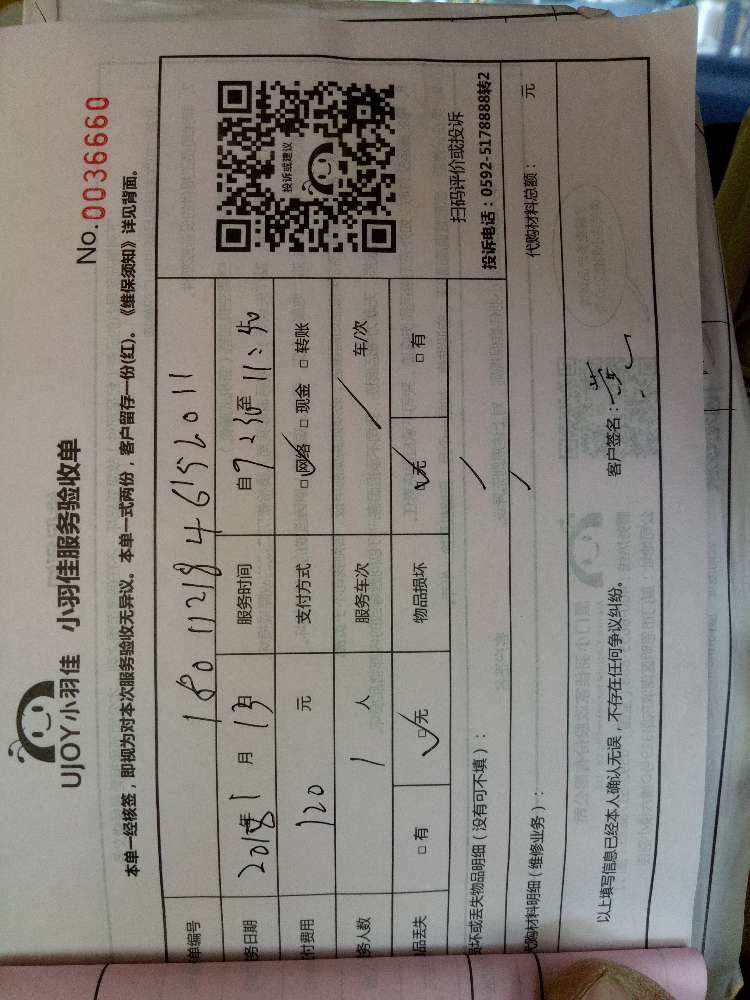 UJOY小羽佳 小羽佳服务验收单
No.0036660
本单一经核签，即视为对本次服务验收无异议。本单一式两份，客户留存一份(红)。《维保须知》详见背面。
单编号 1801121846152011
务日期 2018年1月13日 服务时间 自 至11:40
付费用 120元 支付方式 □网络 □现金 □转账
务人数 1人 服务车次 / 车/次
品丢失 □有 □无 物品损坏 □无 □有
投诉或建议
扫码评价或投诉
投诉电话：0592-5178888转2
损坏或丢失物品明细（没有可不填）： /
代购材料明细（维修业务）： / 代购材料总额： 元
以上填写信息已经本人确认无误，不存在任何争议纠纷。 客户签名：